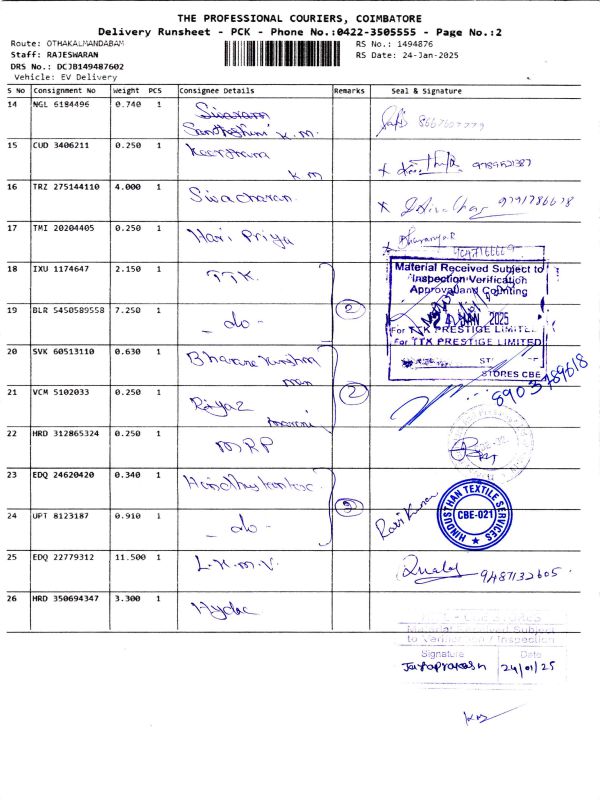 THE PROFESSIONAL COURIERS, COIMBATORE
Delivery Runsheet - PCK - Phone No.:0422-3505555 - Page No.:2
Route: OTHAKALMANDABAM
RS No.: 1494876
Staff: RAJESWARAN
RS Date: 24-Jan-2025
DRS No.: DCJB149487602
Vehicle: EV Delivery
S No Consignment No Weight PCS Consignee Details Remarks Seal & Signature
14 NGL 6184496 0.740 1 Sivaram
Santhoshini K.M.
15 CUD 3406211 0.250 1 Keerthana
K M 9789521387
16 TRZ 275144110 4.000 1 Sivacharan 9791786618
17 TMI 20204405 0.250 1 Hari Priya
18 IXU 1174647 2.150 1 TTK
Material Received Subject to
Inspection Verification
Approval and Counting
19 BLR 5450589558 7.250 1 - do - 2
JAN 2025
For TTK PRESTIGE LIMITED
For TTK PRESTIGE LIMITED
STORES CBE
8903789618
20 SVK 60513110 0.630 1
21 VCM 5102033 0.250 1 2
22 HRD 312865324 0.250 1 MRP
23 EDQ 24620420 0.340 1
24 UPT 8123187 0.910 1 - do - Ravi Kumar
HINDUSTHAN TEXTILE SERVICES
CBE-021
25 EDQ 22779312 11.500 1 L.K.M.V. 9487132605
26 HRD 350694347 3.300 1 Hydac
Material Received Subject
to Verification / Inspection
Signature Date
Jayaprakash 24/01/25